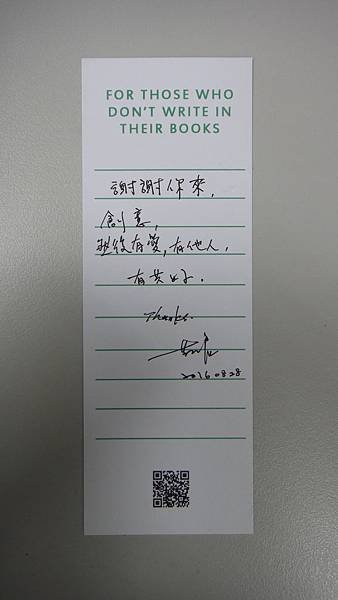 FOR THOSE WHO
DON'T WRITE IN
THEIR BOOKS
謝謝你來,
創意,
背後有愛,有他人,
有美好.
Thanks.
20160828